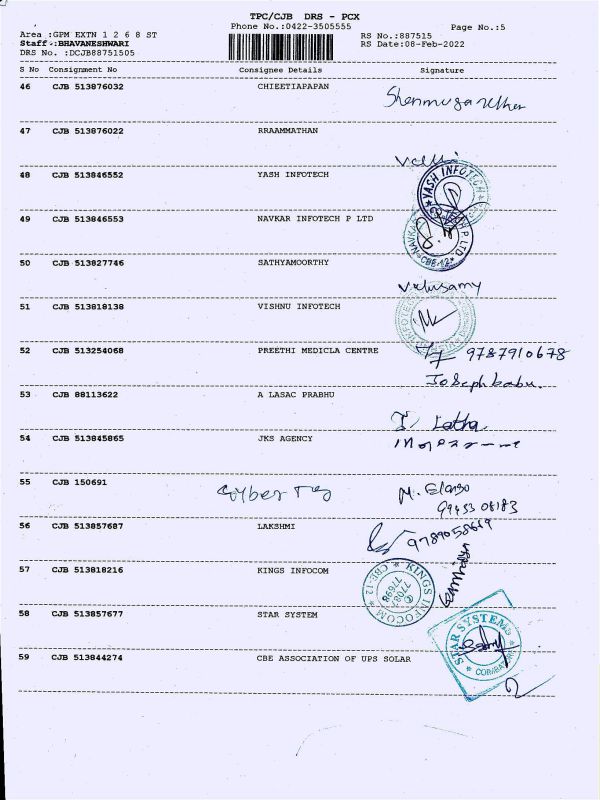 TPC/CJB DRS - PCX
Phone No.:0422-3505555
Page No.:5
Area :GPM EXTN 1 2 6 8 ST
Staff :BHAVANESHWARI
DRS No. :DCJB88751505
RS No.:887515
RS Date:08-Feb-2022
S No Consignment No Consignee Details Signature
46 CJB 513876032 CHIEETIAPAPAN
47 CJB 513876022 RRAAMMATHAN
Valli
48 CJB 513846552 YASH INFOTECH
YASH INFOTECH
49 CJB 513846553 NAVKAR INFOTECH P LTD
NAVKAR P LTD
CBE-12
50 CJB 513827746 SATHYAMOORTHY
Velusamy
51 CJB 513818138 VISHNU INFOTECH
52 CJB 513254068 PREETHI MEDICLA CENTRE 9787910678
Josephbabu.
53 CJB 88113622 A LASAC PRABHU
Latha
54 CJB 513845865 JKS AGENCY
55 CJB 150691 M. Elango
56 CJB 513857687 LAKSHMI
57 CJB 513818216 KINGS INFOCOM
KINGS INFOCOM
CBE-12
58 CJB 513857677 STAR SYSTEM
STAR SYSTEMS
59 CJB 513844274 CBE ASSOCIATION OF UPS SOLAR